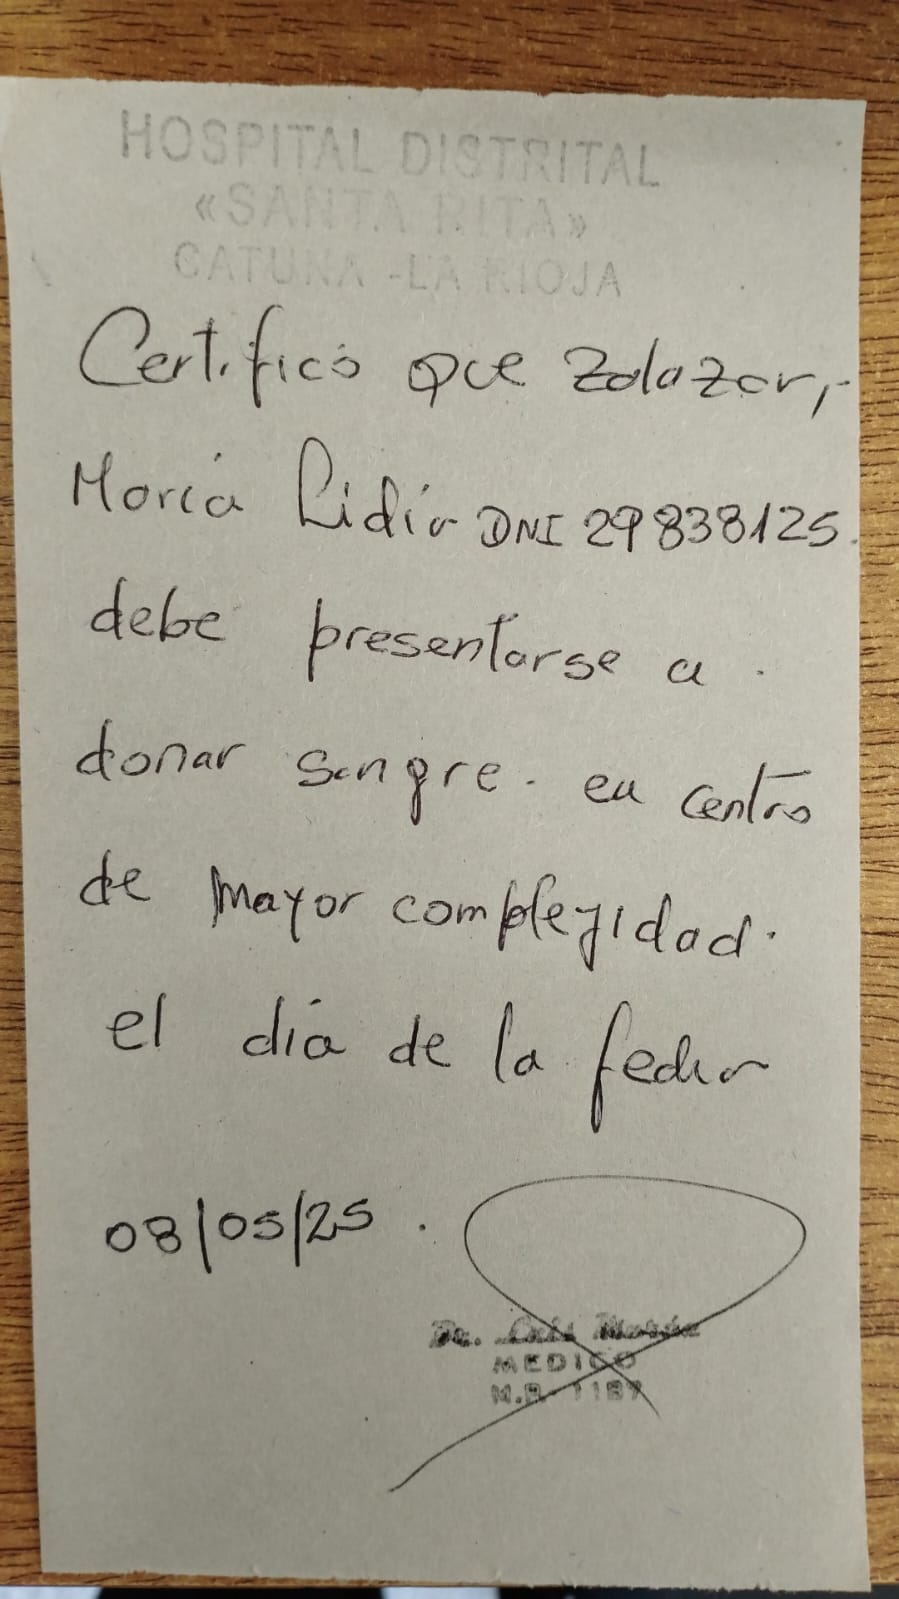 HOSPITAL DISTRITAL
«SANTA RITA»
CATUNA - LA RIOJA
Certifico que Zolazar,
María Lidia DNI 29838125.
debe presentarse a
donar sangre. en centro
de mayor complejidad.
el día de la fecha
08/05/25.
Dr. Luis
MEDICO
M.P. 1187